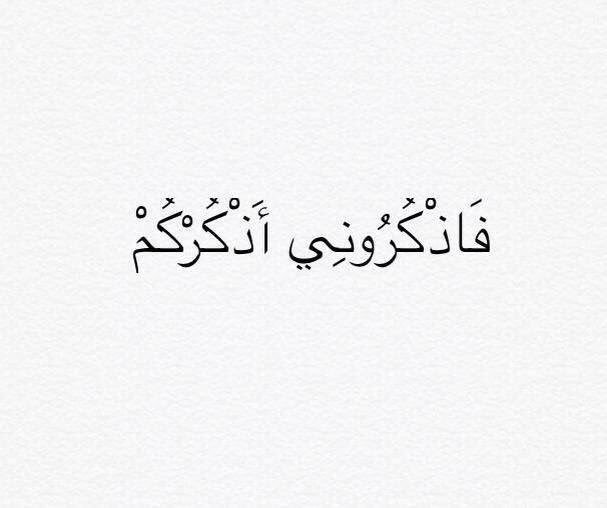 فَاذْكُرُونِي أَذْكُرْكُمْ